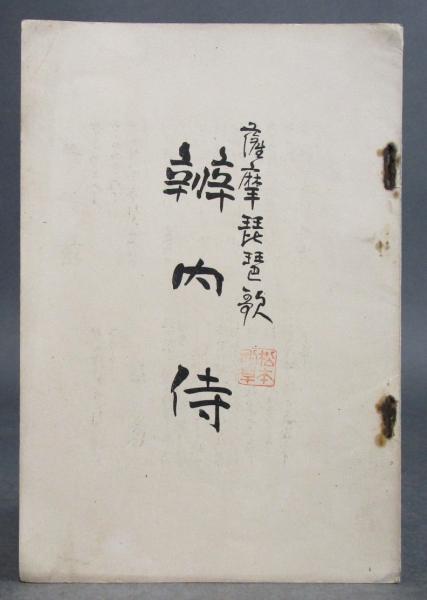 薩摩琵琶歌
辨内侍